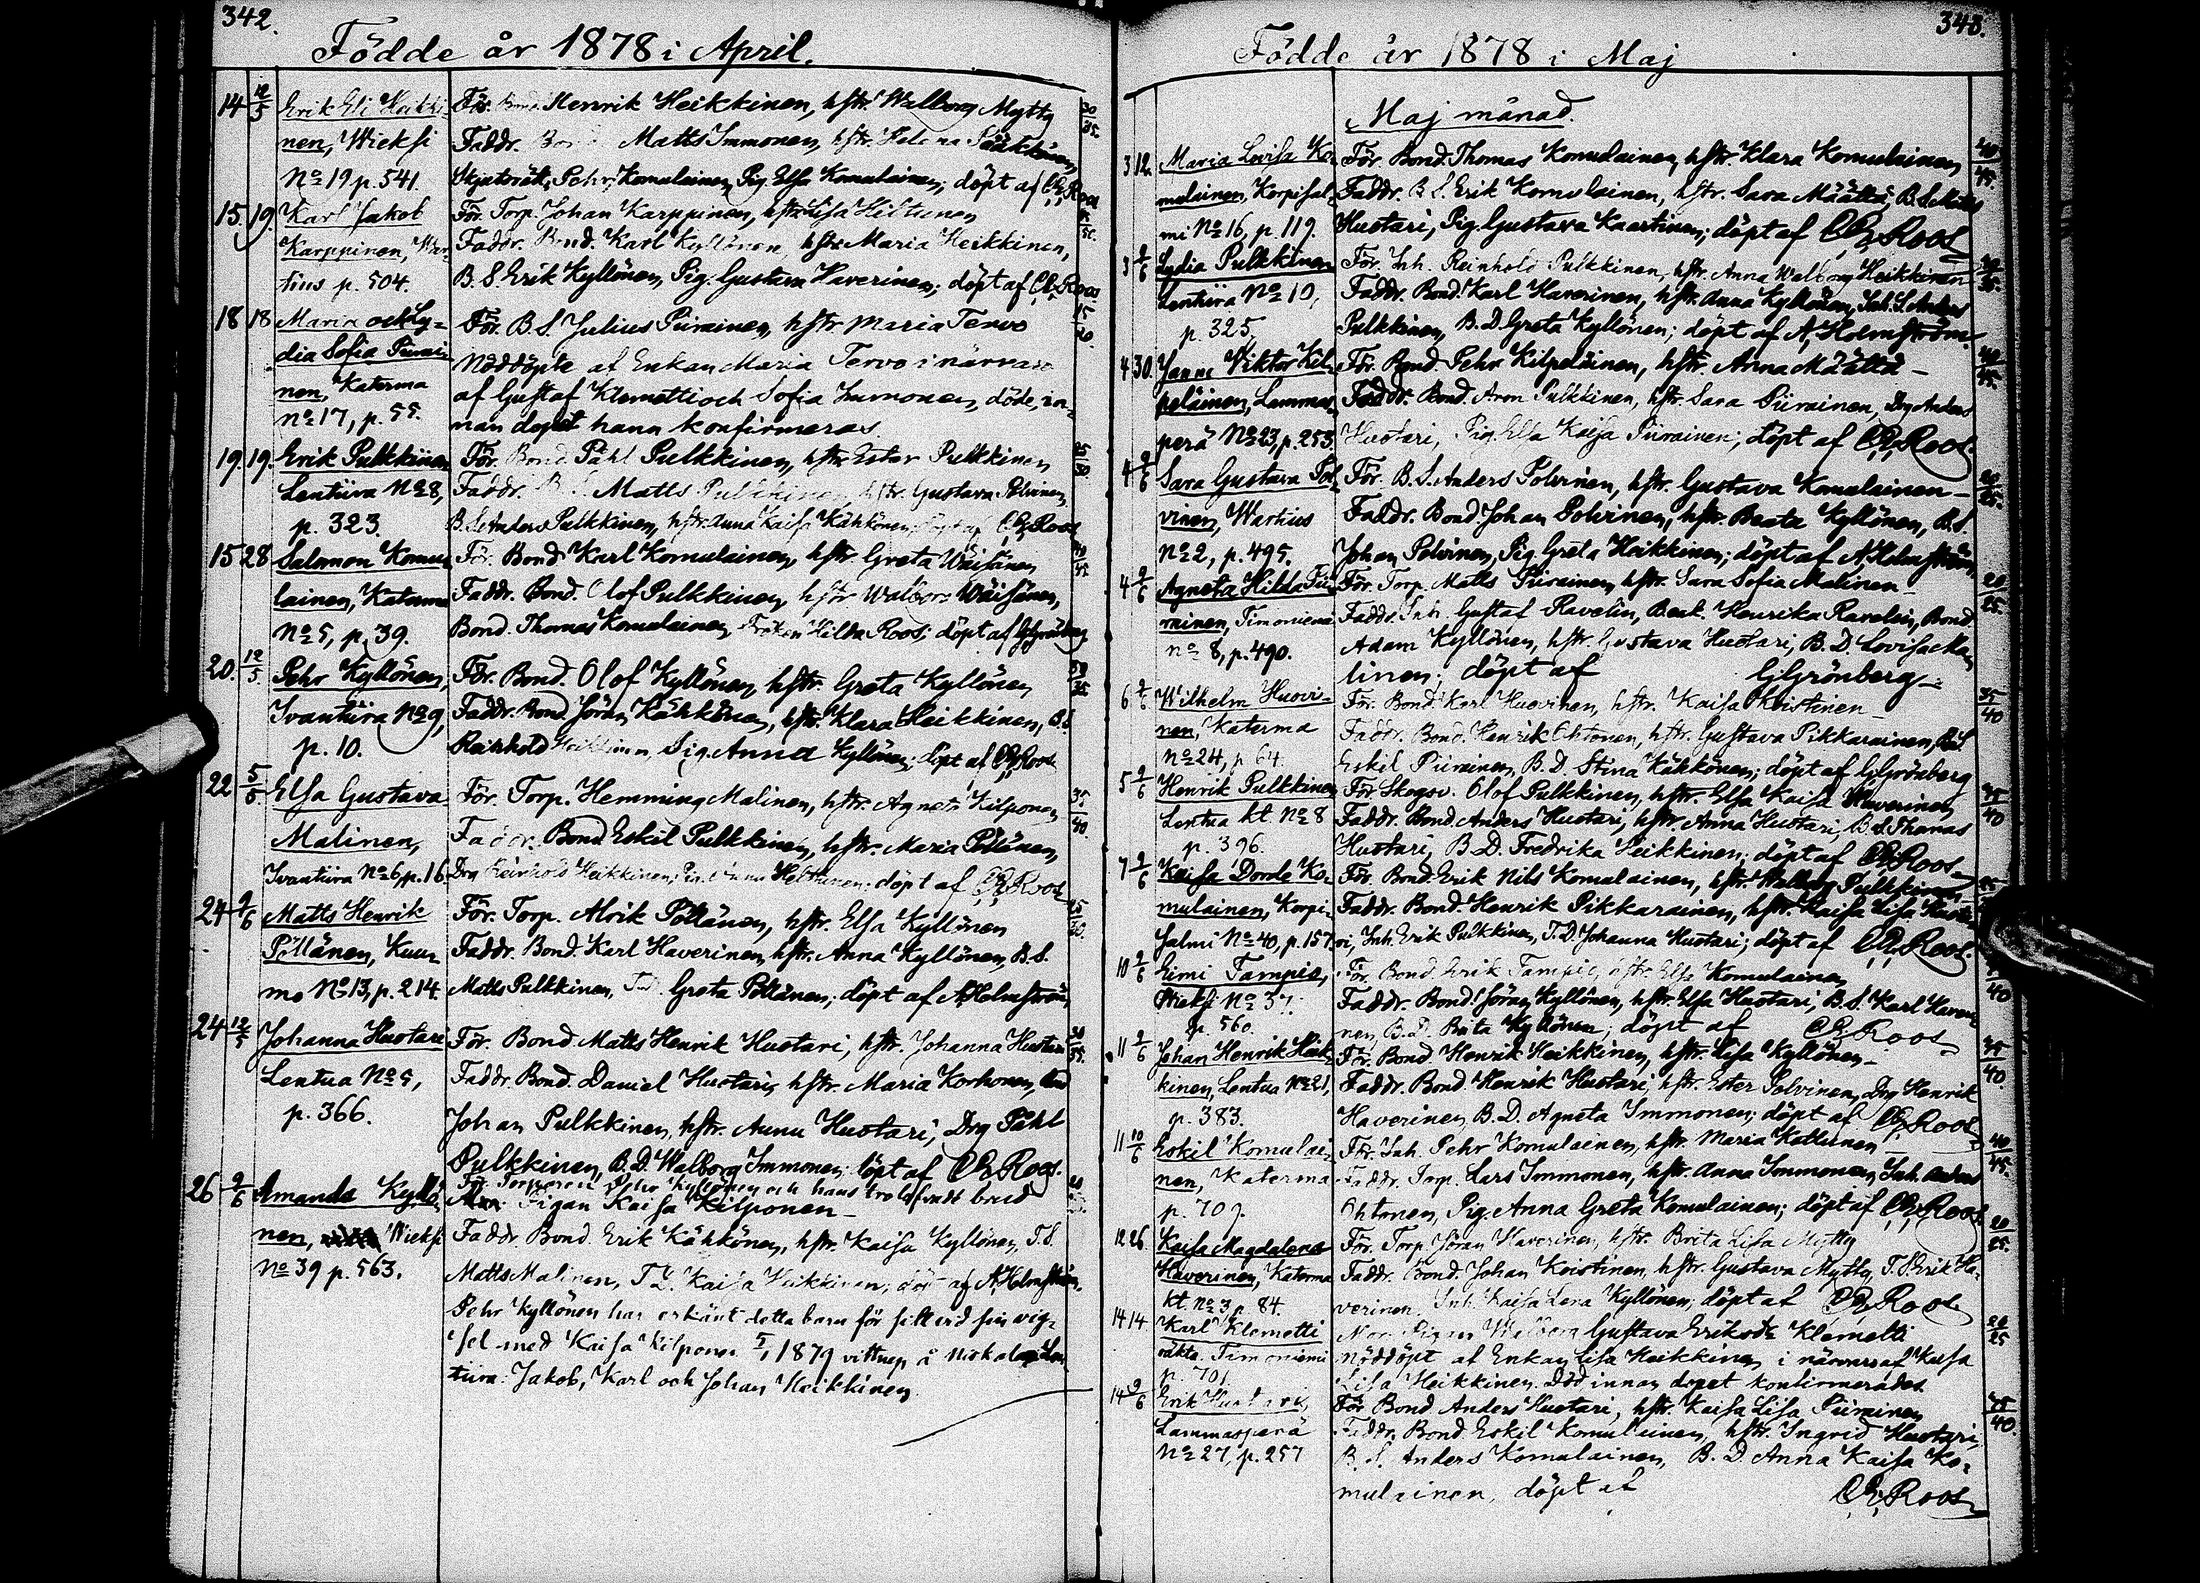 342.
Födde år 1878 i April.
14 12/5 Erik Eli Heikki- För. Bond. Henrik Heikkinen, hstr. Walborg Mytty 30/35.
nen, Wieksi Faddr. Bond. Matts Immonen, hstr. Helena Pääkkönen,
No 19 p. 541. Skjutsrätt. Pehr Komulainen, Pig. Elsa Komulainen; döpt af C.E. Roos
15. 19. Karl Jakob För. Torp. Johan Karppinen, hstr Lisa Hiltunen
Karppinen, War- Faddr. Bond. Karl Kyllönen, hstr. Maria Heikkinen,
tius p. 504. B.S. Erik Kyllönen, Pig. Gustava Haverinen; döpt af C.E. Roos
18 18 Maria och Ly- För. B.S. Julius Piirainen, hstr Maria Tervo
dia Sofia Piirai- Nöddöpte af Enkan Maria Tervo i närvaro
nen, Katerma af Gustaf Klemetti och Sofia Immonen, döde, in-
No 17, p. 55. nan dopet hann konfirmeras
19. 19. Erik Pulkkinen För. Bond. Påhl Pulkkinen, hstr. Ester Pulkkinen
Lentiira No 8, Faddr. B.S. Matts Pulkkinen, hstr. Gustava Polvinen,
p. 323. B.S. Anders Pulkkinen, hstr. Anna Kaisa Kähkönen; döpt af C.E. Roos
15 28 Salomon Komu- För. Bond. Karl Komulainen, hstr. Greta Wäisänen
lainen, Katerma Faddr. Bond. Olof Pulkkinen, hstr Walborg Wäisänen,
No 5, p. 39. Bond. Thomas Komulainen, Fröken Hilda Roos; döpt af G. Grönberg
20. 12/5. Pehr Kyllönen, För. Bond. Olof Kyllönen, hstr. Greta Kyllönen 30/35
Ivantiira No 9, Faddr. Bond. Jöran Kähkönen, hstr. Klara Heikkinen, B.S.
p. 10. Reinhold Heikkinen, Pig. Anna Kyllönen; döpt af C.E. Roos
22 5/5 Elsa Gustava För. Torp. Hemming Malinen, hstr. Agneta Kilponen, 35/40.
Malinen, Faddr. Bond. Eskil Pulkkinen, hstr. Maria Pöllänen,
Ivantiira No 6, p. 16. Drg Reinhold Heikkinen, Pig. Anna Heikkinen; döpt af C.E. Roos
24 2/6 Matts Henrik För. Torp. Alrik Pöllänen, hstr. Elsa Kyllönen
Pöllänen, Kuu- Faddr. Bond. Karl Haverinen, hstr. Anna Kyllönen, B.S.
mo No 13, p. 214. Matts Pulkkinen, Greta Pöllänen; döpt af A. Holmström,
24 12/5 Johanna Huotari För. Bond. Matts Henrik Huotari, hstr. Johanna Huotari
Lentua No 5, Faddr. Bond. Daniel Huotari, hstr. Maria Korhonen, Bond
p. 366. Johan Pulkkinen, hstr. Anna Huotari, Drg Påhl
Pulkkinen, B.D. Walborg Immonen; döpt af C.E. Roos.
För. Torparen Pehr Kyllönen och hans trolofvade brud
26 2/6 Amanda Kyllö- Pigan Kaisa Kilponen
nen, Wieksi Faddr. Bond. Erik Kähkönen, hstr. Kaisa Kyllönen, T.S.
No 39 p. 563. Matts Malinen, T.D. Kaisa Heikkinen; döpt af A. Holmström.
Pehr Kyllönen har erkänt detta barn för sitt vid sin vig-
sel med Kaisa Kilponen 5/1 1879 vittnen å Niskala Len-
tiira: Jakob, Karl och Johan Heikkinen.
343.
Födde år 1878 i Maj
Maj månad.
3 12. Maria Lovisa Ko- För. Bond. Thomas Komulainen, hstr. Klara Komulainen 40/45.
mulainen, Korpisal- Faddr. B.S. Erik Komulainen, hstr. Sara Määttä, B.S. Matts
mi No 16, p. 119. Huotari, Pig. Gustava Kaartinen; döpt af C.E. Roos
3 2/6 Lydia Pulkkinen För. Inh. Reinhold Pulkkinen, hstr. Anna Walborg Heikkinen 30/35.
Lentiira No 10, Faddr. Bond. Karl Haverinen, hstr. Anna Kyllönen, Inh. S. Anders
p. 325. Pulkkinen, B.D. Greta Kyllönen; döpt af A. Holmström
4 30. Janne Wiktor Kil- För. Bond. Pehr Kilpeläinen, hstr. Anna Määttä 40/45.
peläinen, Lammas- Faddr. Bond. Aron Pulkkinen, hstr. Sara Piirainen, Drg Anders
perä No 23, p. 253. Huotari, Pig. Elsa Kaisa Piirainen; döpt af C.E. Roos.
4 2/6 Sara Gustava Pol- För. B.S. Anders Polvinen, hstr. Gustava Komulainen 20/25.
vinen, Wartius Faddr. Bond Johan Polvinen, hstr. Beata Kyllönen, B.S.
No 2, p. 495. Johan Polvinen, Pig. Greta Heikkinen; döpt af A. Holmström,
4 2/6 Agneta Hilda Pii- För. Torp. Matts Piirainen, hstr. Sara Sofia Malinen 20/25.
rainen, Timoniemi Faddr. Inh. Gustaf Ravelin, Beat. Henrika Ravelin, Bond
No 8, p. 490. Adam Kyllönen, hstr. Gustava Huotari, B.D. Lovisa Ma-
linen; döpt af G. Grönberg
6 2/6 Wilhelm Huovi- För. Bond. Karl Huovinen, hstr. Kaisa Koistinen 35/40
nen, Katerma Faddr. Bond. Henrik Ohtonen, hstr. Gustava Pikkarainen, B.S.
No 24, p. 64. Eskil Piirainen, B.D. Stina Kähkönen; döpt af G. Grönberg
5 2/6 Henrik Pulkkinen För Skogsv. Olof Pulkkinen, hstr. Elsa Kaisa Haverinen, 35/40
Lentua kt. No 8 Faddr. Bond. Anders Huotari, hstr. Anna Huotari, B.S. Thomas
p. 396. Huotari, B.D. Fredrika Heikkinen; döpt af C.E. Roos
7 2/6 Kaisa Dorole Ko- För. Bond. Erik Nils Komulainen, hstr. Walborg Pulkkinen
mulainen, Korpi- Faddr. Bond. Henrik Pikkarainen, hstr. Kaisa Lisa Huota-
salmi No 40, p. 157. ri, Inh. Erik Pulkkinen, T.D. Johanna Huotari; döpt af C.E. Roos.
10 2/6 Eimi Tampio, För. Bond Erik Tampio, hstr. Elsa Komulainen,
Wieksi No 37. Faddr. Bond. Jöran Kyllönen, hstr. Elsa Huotari, B.S. Karl Haveri-
p. 560. nen, B.D. Brita Kyllönen; döpt af C.E. Roos
11 2/6 Johan Henrik Heik- För. Bond. Henrik Heikkinen, hstr. Lisa Kyllönen 35/40.
kinen, Lentua No 21, Faddr. Bond. Henrik Huotari, hstr. Ester Polvinen, Drg Henrik
p. 383. Haverinen, B.D. Agneta Immonen; döpt af C.E. Roos
11 10/6 Eskil Komulai- För. Inh. Pehr Komulainen, hstr. Maria Kettunen 40/45.
nen, Katerma Faddr. Torp. Lars Immonen, hstr. Anna Immonen, Inh. Anders
p. 70. Ohtonen, Pig. Anna Greta Komulainen; döpt af C.E. Roos
12 26. Kaisa Magdalena För. Torp. Jöran Haverinen, hstr. Brita Lisa Mytty 20/25.
Haverinen, Katerma Faddr. Bond. Johan Koistinen, hstr. Gustava Mytty, T.S. Erik Ha-
kt. No 3 p. 84. verinen, Inh. Kaisa Lena Kyllönen; döpt af C.E. Roos
14 14. Karl Klemetti Mor Pigan Walborg Gustava Eriksdr Klemetti 20/25
oäkta. Timoniemi nöddöpt af Enkan Lisa Heikkinen i närvaro af Kaisa
p. 701. Lisa Heikkinen. Död innan dopet konfirmerades.
14 9/6 Erik Huotari, För Bond Anders Huotari, hstr. Kaisa Lisa Piirainen 35/40.
Lammasperä Faddr. Bond. Eskil Komulainen, hstr. Ingrid Huotari,
No 27, p. 257 B.S. Anders Komulainen, B.D. Anna Kaisa Ko-
mulainen, döpt af C.E. Roos